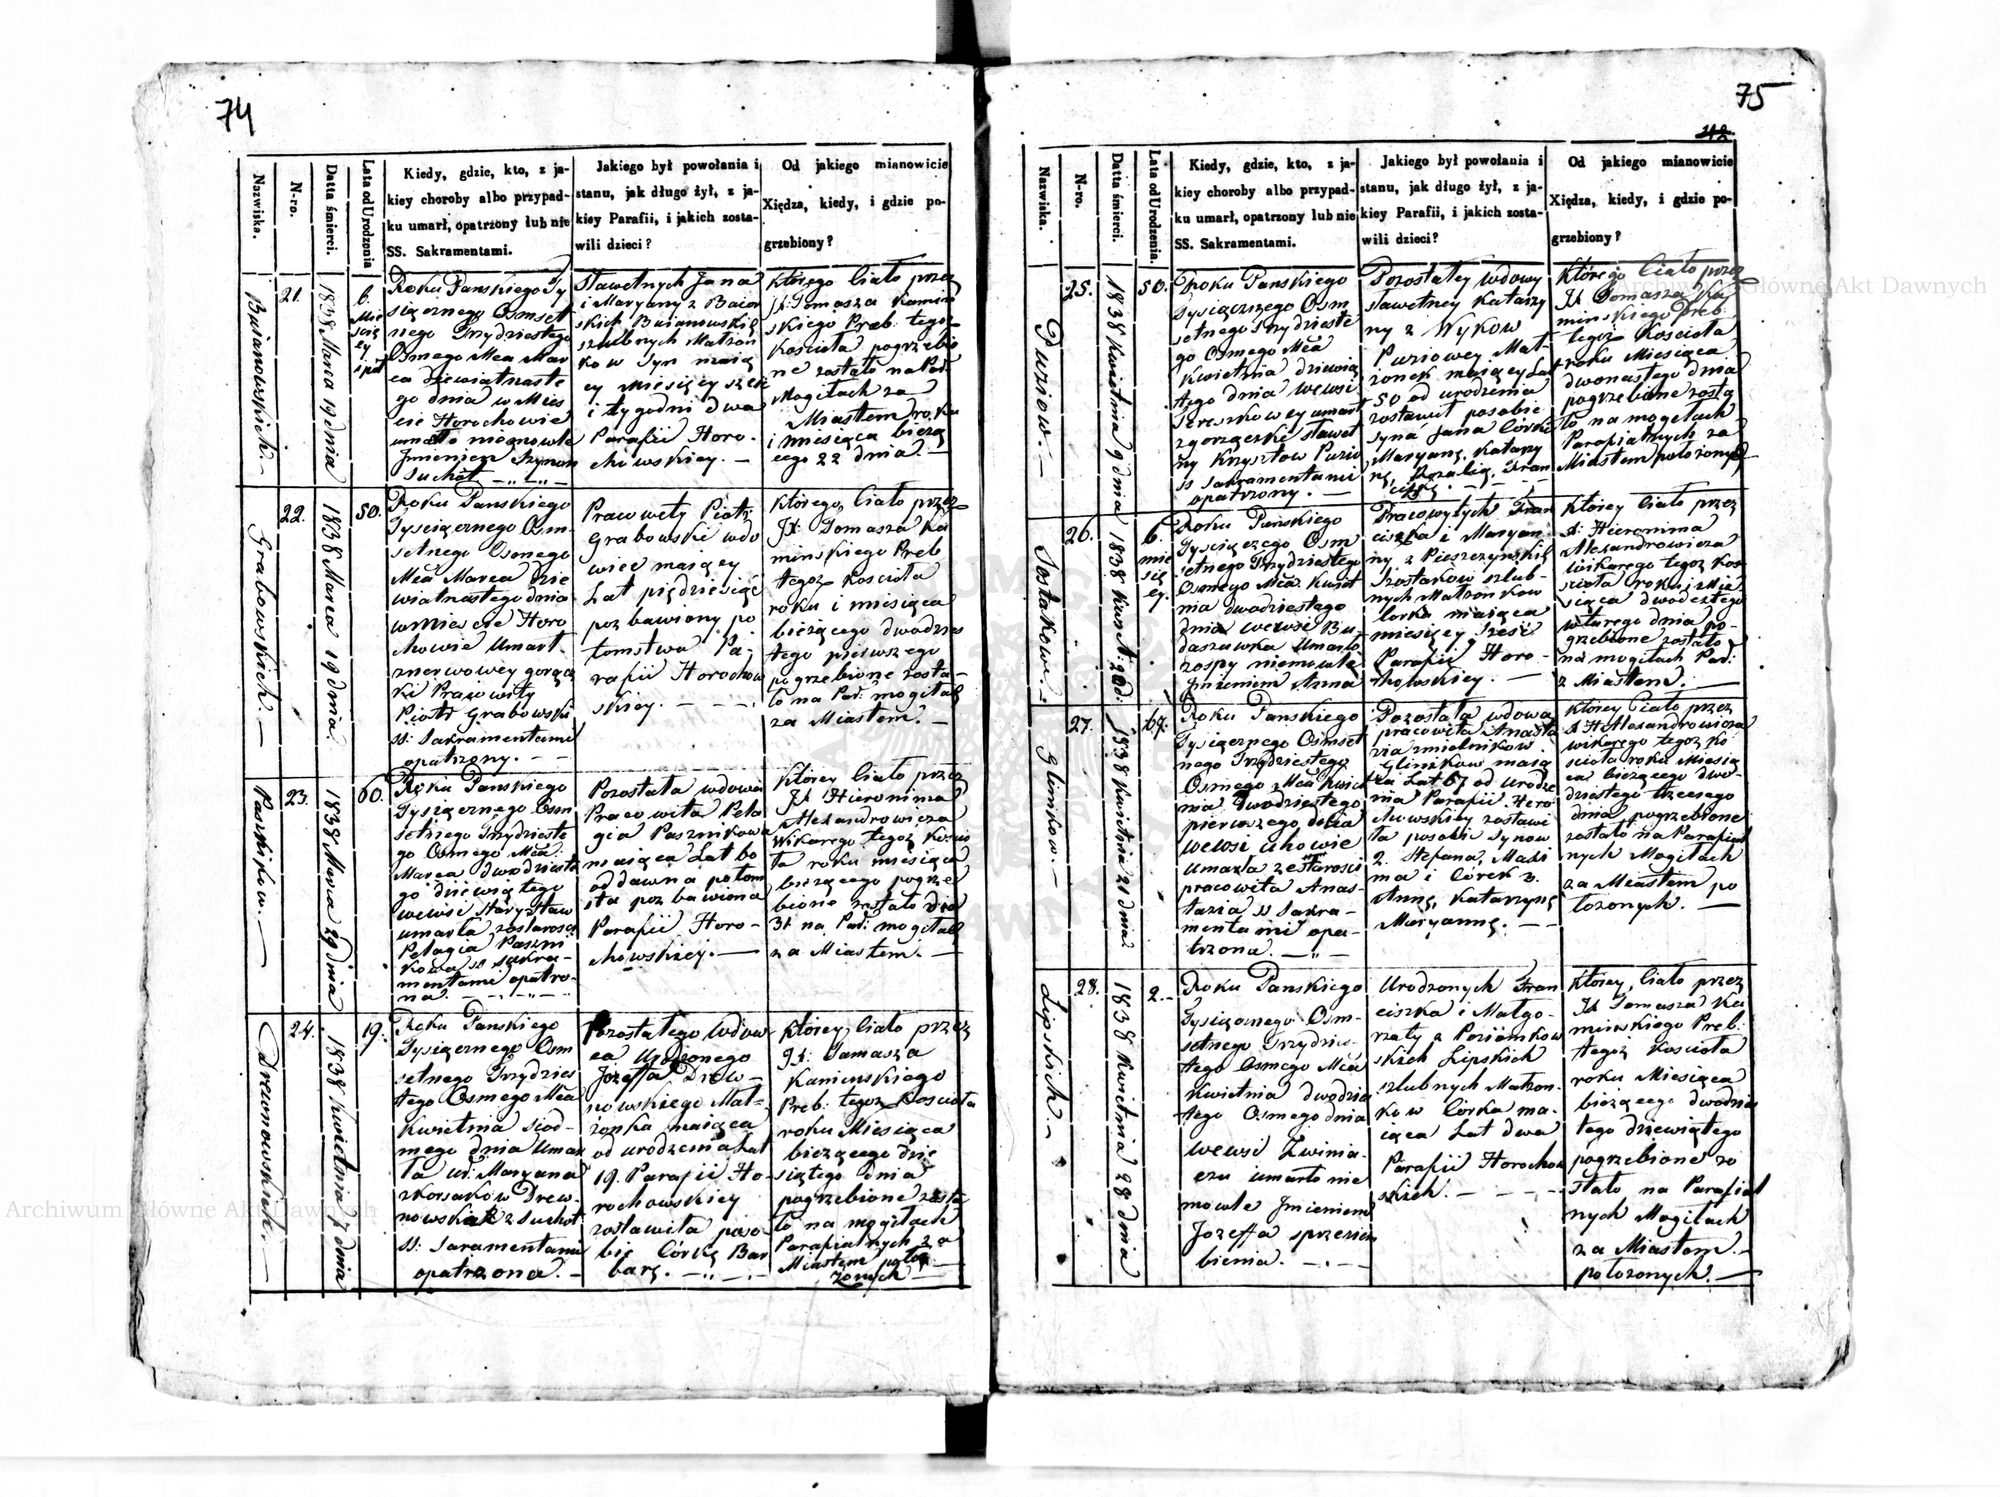 74
Nazwiska.
N-ro.
Datta śmierci.
Lata od Urodzenia
Kiedy, gdzie, kto, z ja-
kiey choroby albo przypad-
ku umarł, opatrzony lub nie
SS. Sakramentami.
Jakiego był powołania i
stanu, jak długo żył, z ja-
kiey Parafii, i jakich zosta-
wili dzieci?
Od jakiego mianowicie
Xiędza, kiedy, i gdzie po-
grzebiony?
Buianowskich.
21.
1838 Marca 19 dnia
6.
Mie
sięc
ey
Roku Panskiego Ty
siącznego Osmset
nego Trzydziestego
Osmego Mca Mar
ca dziewiątnaste
go dnia w Mies
cie Horochowie
umarło niemowle
Jmieniem Szymon
Suchot
Sławetnych Jana
i Maryany z Baior
skich Buianowskich
szlubnych Małżon
kow Syn maią
cy Miesięcy sześć
i tygodni dwa
Parafii Horo-
chowskiey. —
Którego Ciało przez
JX: Tomasza Kamin
skiego Preb: tegoż
Kościoła pogrzebio
ne zostało na Par:
Mogiłach za
Miastem roku
i miesiąca bieżą
cego 22 dnia. —
Grabowskich. —
22.
1838 Marca 19 dnia
50.
Roku Panskiego
Tysiącznego Osm-
setnego Osmego
Mca Marca dzie
wiatnastego dnia
w Miescie Horo
chowie Umarł
znerwowey gorącz
ki Pracowity
Piotr Grabowski
SS: Sakramentami
opatrzony. — —
Pracowity Piotr
Grabowski wdo
wiec maiący
Lat pięćdziesiąt
pozbawiony po
tomstwa Pa-
rafii Horochow
skiey. — — —
Którego Ciało przez
JX: Tomasza Ka
minskiego Preb
tegoż Kościoła
roku i miesiąca
bieżącego dwudzies
tego pierwszego
pogrzebione zosta-
ło na Par: mogiłach
za Miastem. —
Pasznikow. —
23.
1838 Marca 29 dnia
60.
Roku Panskiego
Tysiącznego Osm
setnego Trzydzieste
go Osmego Mca
Marca dwudzieste
go dziewiątego
wewsi Starystaw
umarła zestarosci
Pelagia Paszni
kowa SS Sakra-
mentami opatrzo-
na. — — —
Pozostała wdowa
Pracowita Pela
gia Pasznikowa
maiąca Lat 60
oddawna potom
stwa pozbawiona
Parafii Horo-
chowskiey. —
Którey Ciało przez
JX Hieronima
Alexandrowicza
Wikarego tegoż Kościo
ła roku miesiąca
bieżącego pogrze
bione zostało dnia
31 na Par: mogiłach
za Miastem. —
Drewnowskich. —
24.
1838 Kwietnia 7 dnia
19.
Roku Panskiego
Tysiącznego Osm
setnego Trzydzies
tego Osmego Mca
Kwietnia siod-
mego dnia Umar
ła ur: Maryana
zKorsaków Drew-
nowska z Suchot
SS: Saramentami
opatrzona. —
Pozostałego Wdow
ca Urodzonego
Jozeffa Drew-
nowskiego Mał-
żonka maiąca
od urodzenia Lat
19. Parafii Ho-
rochowskiey
zostawiła poso-
bie Córkę Bar
barę. — — —
Którey Ciało przez
JX: Tomasza
Kaminskiego
Preb: tegoż Kościoła
roku Miesiąca
bieżącego dzie
siątego dnia
pogrzebione zosta
ło na mogiłach
Parafialnych za
Miastem poło
żonych —
75
42.
Nazwiska.
N-ro.
Datta śmierci.
Lata od Urodzenia.
Kiedy, gdzie, kto, z ja-
kiey choroby albo przypad-
ku umarł, opatrzony lub nie
SS. Sakramentami.
Jakiego był powołania i
stanu, jak długo żył, z ja-
kiey Parafii, i jakich zosta-
wili dzieci?
Od jakiego mianowicie
Xiędza, kiedy, i gdzie po-
grzebiony?
Puziow. —
25.
1838 Kwietnia 9 dnia
50.
Roku Panskiego
Tysiącznego Osm
setnego Trzydzieste
go Osmego Mca
Kwietnia dziewią
tego dnia wewsi
Tereszkowcy umarł
zgorączki sławet
ny Krzysztow Puzio
SS Sakramentami
opatrzony. —
Pozostałey wdowy
sławetney Katarzy
ny z Wykow
Puziowey Mał-
żonek maiący Lat
50 od urodzenia
zostawił posobie
Syna Jana Córki
Maryanę, Katarzy
nę, Rozalię, Fran
ciszkę. — —
Którego Ciało przez
JX Tomasza Ka
minskiego Preb
tegoż Kościoła
roku Miesiąca
dwonastego dnia
pogrzebione zosta
ło na mogiłach
Parafialnych za
Miastem położonych
Szostakow.
26.
1838 Kwiet: 20 d:
6.
mie
się
cy.
Roku Pańskiego
Tysiączego Osm
setnego Trzydziestego
Osmego Mca Kwiet
nia dwudziestego
dnia wewsi Bu
daszawka Umarło
zospy niemowle
Jmieniem Anna
Pracowytych Fran
ciszka i Maryan
ny z Pieszczynskich
Szostakow szlub-
nych Małżonkow
Corka maiąca
miesięcy sześć
Parafii Horo-
chowskiey. —
Którey Ciało przez
X: Hieronima
Alexandrowicza
Wikarego tegoż Kos
cioła roku, mie
siąca dwódzstego
wturego dnia po-
grzebione zostało
na mogiłach Par:
z Miastem. —
Glinkow. —
27.
1838 Kwietnia 21 dnia
67.
Roku Panskiego
Tysiącznego Osmset
nego Trzydziestego
Osmego Mca Kwiet
nia Dwudziestego
pierwszego dnia
wewsi Uhowie
Umarła zestarosci
pracowita Anas-
tazia SS Sakra-
mentami opa-
trzona. — „ —
Pozostała wdowa
pracowita Anasta
zia zmielnikow
Glinkow maią
ca Lat 67 od urodze
nia Parafii Horo
chowskiey zostawi
ła posobie Synow
2. Stefana, Maxi
ma i Córek 3.
Annę, Katarzynę
Maryannę. — —
Którey Ciało przez
X H Alexandrowicza
wikarego tegoż Ko
scioła roku Miesią
ca bieżącego dwu-
dziestego trzeciego
dnia pogrzebione
zostało na Parafial
nych Mogiłach
za Miastem po
łożonych. —
Lipskich. —
28.
1838 Kwietnia 28 dnia
2.-
Roku Panskiego
Tysiącznego Osm-
setnego Trzydzies-
tego Osmego Mca
Kwietnia dwudzies
tego Osmego dnia
wewsi Zwinia-
czu umarło nie
mowle Jmieniem
Jozeffa zprzezię
bienia. — . —
Urodzonych Fran
ciszka i Małgo-
rzaty z Poziomkow
skich Lipskich
szlubnych Małżon-
kow Córka ma-
iąca Lat dwa
Parafii Horochow
skiey. — — —
Którey Ciało przez
JX Tomasza Ka
minskiego Preb:
tegoż Kościoła
roku Miesiąca
bieżącego dwudzies
tego dziewiątego
pogrzebione zo
stało na Parafial
nych Mogiłach
za Miastem. —
położonych. —
Archiwum Główne Akt Dawnych
Archiwum Główne Akt Dawnych